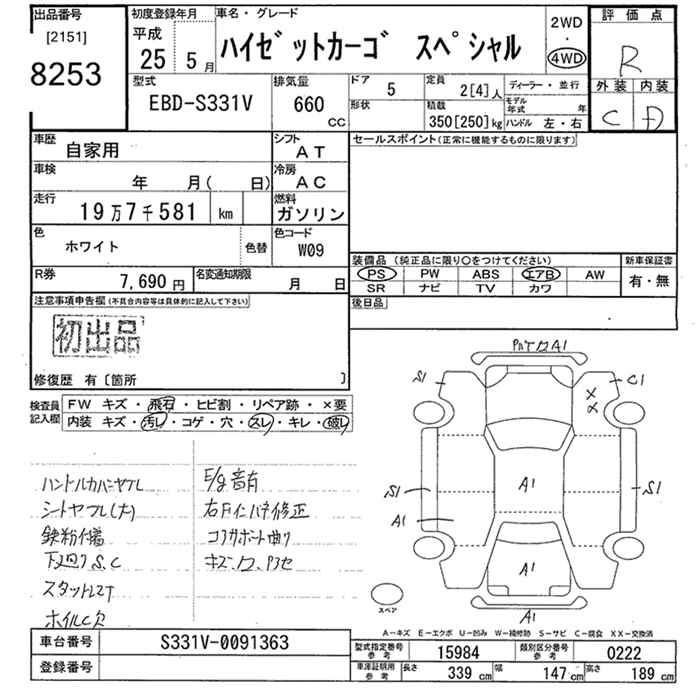 出品番号
[2151]
8253
初度登録年月
平成
25年 5月
車名・グレード
ハイゼットカーゴ スペシャル
2WD
・
4WD
評価点
R
外装 内装
C D
型式
EBD-S331V
排気量
660
CC
ドア
5
形状
定員
2[4]人
積載
350[250]kg
ディーラー・並行
モデル年式 年
ハンドル 左・右
車歴
自家用
シフト
AT
車検
年 月( 日)
冷房
AC
走行
19万7千581 km
燃料
ガソリン
色
ホワイト
色替
色コード
W09
R券
7,690円
名変通知期限
月 日
セールスポイント(正常に機能するものに限ります)
装備品(純正品に限り○をつけてください)
PS PW ABS エアB AW
SR ナビ TV カワ
新車保証書
有・無
後日品
注意事項申告欄(不具合内容等は具体的に記入して下さい)
初出品
修復歴 有[箇所 ]
検査員記入欄
FW キズ・飛石・ヒビ割・リペア跡・×要
内装 キズ・汚レ・コゲ・穴・スレ・キレ・破レ
ハンドルカバーヤブレ
シートヤブレ(大)
鉄粉付着
下廻りS.C
スタットレスT
ホイルC欠
E/g音有
コアサポート曲り
A1
S1
C1
×
×
S1
A1
A1
S1
A1
A1
スペア
A-キズ E-エクボ U-凹み W-補修跡 S-サビ C-腐食 XX-交換済
車台番号
S331V-0091363
登録番号
型式指定番号 参考
15984
類別区分番号 参考
0222
車庫証明用 参考
長さ 339 cm
幅 147 cm
高さ 189 cm